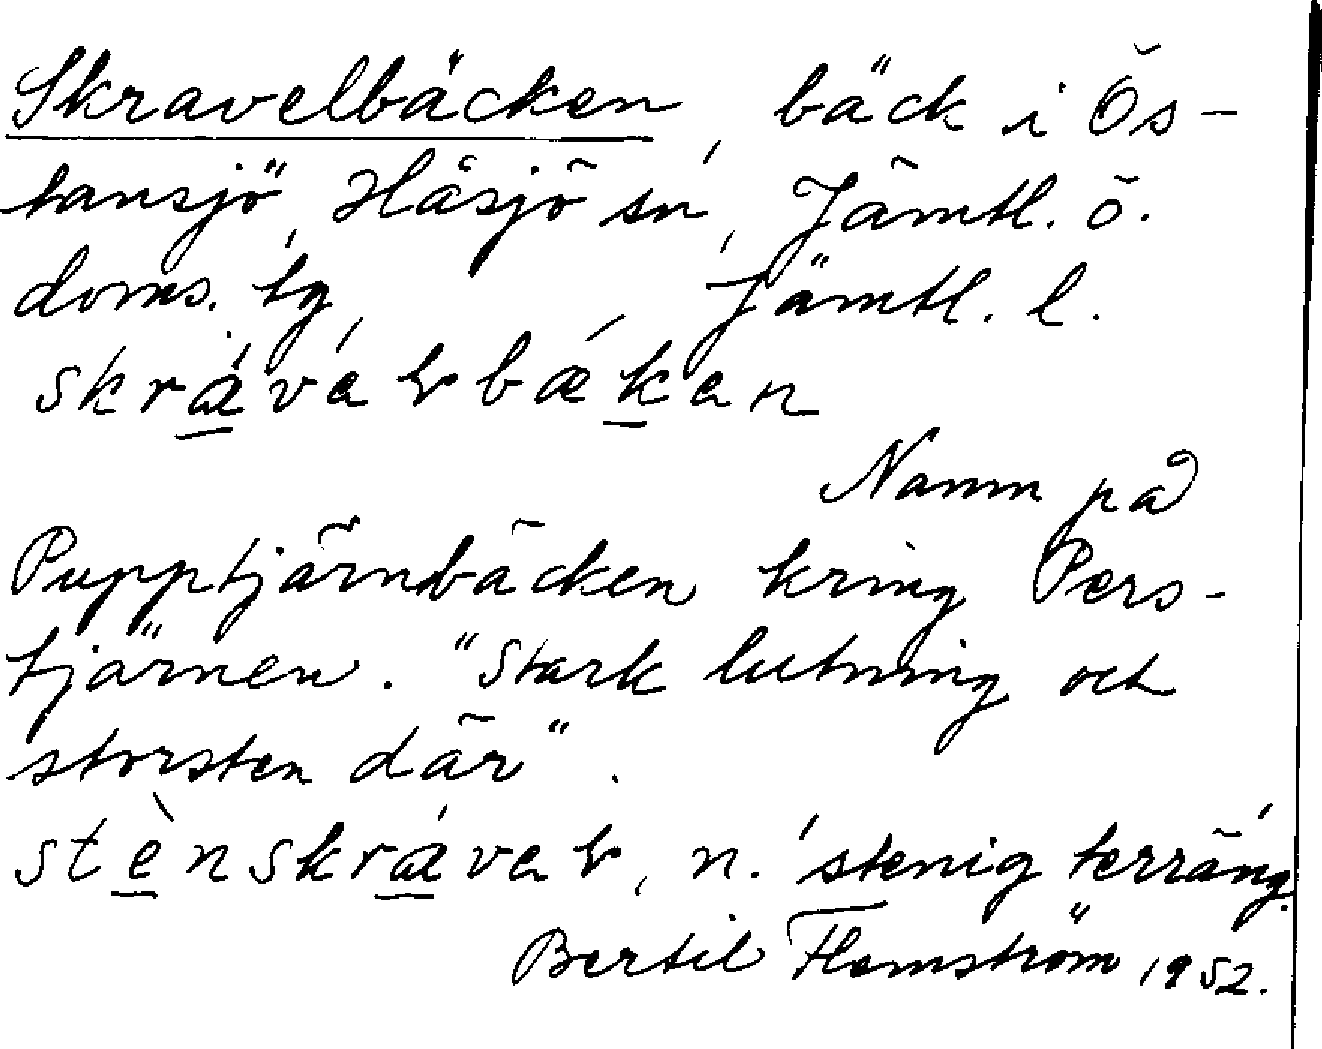 Skravelbäcken, bäck i Ös-
tansjö, Håsjö sn, Jämtl. ö.
doms. tg, Jämtl. l.
Namn på
Pupptjärnbäcken kring Pers-
tjärnen. "Stark lutning och
storsten där".
n. 'stenig terräng'.
Bertil Flemström 1952.